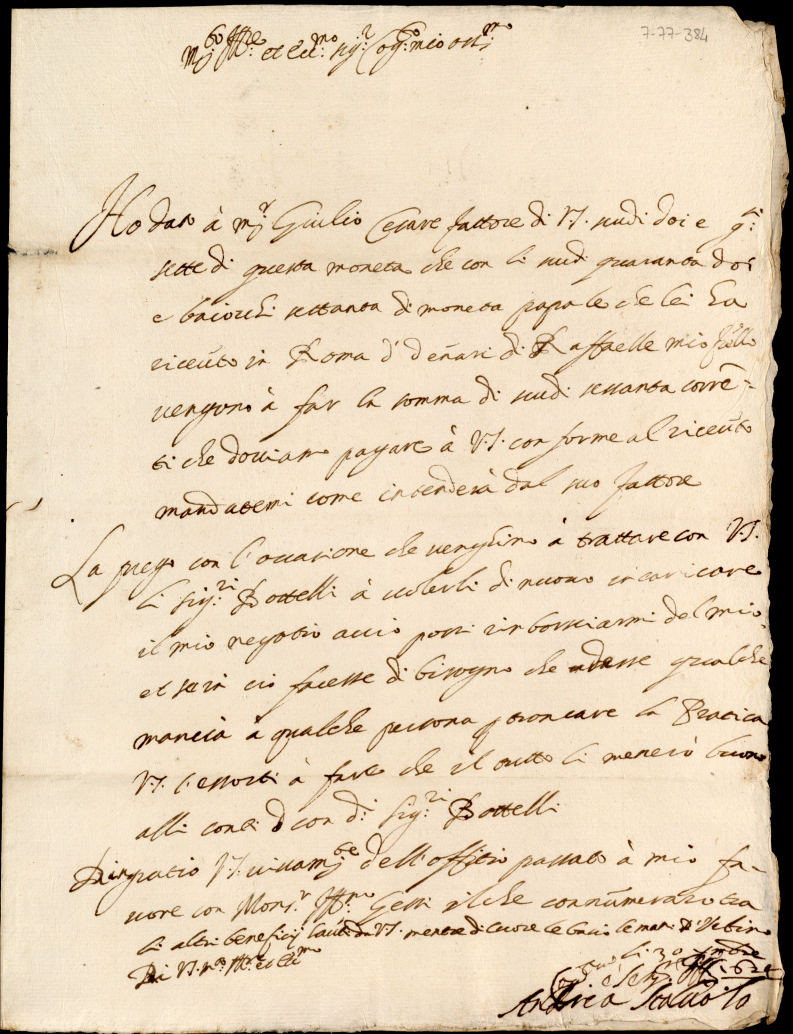 7-77-384
m.to Ill.re et Ecc.mo sig.r Cog.to mio oss.mo
Ho dato à m.r Giulio Cesare fattore di V.S. scudi doi e g.i
sette di questa moneta che con li scudi quaranta doi
e baiocchi settanta di moneta papale che lei ha
riceuto in Roma d' denari di Raffaelle mio fr̃ello
vengono à far la somma di scudi sessanta corrẽ=
ti che doviamo pagare à V.S. conforme al riceuto
mandatemi come intenderà dal suo fattore
La prego con l'occasione che venghino à trattare con V.S.
li sig.ri Bottelli à volerli di nuovo incaricare
il mio negotio acciò possi rinborsciarmi del mio
et se in ciò facesse di bisogno che dasse qualche
mancia à qualche persona p troncare la Pratica
V.S. l'essorti à farlo che il tutto li menerò buono
alli conti con d.i sig.ri Bottelli
Ringratio V.S. vivam.te dell'offitio passato à mio fa-
vore con Mons.r Ill.mo Gessi il che connumerarò tra
li altri beneficij hauti da V.S. mentre di cuore le bacio le mani D'Urbino
li 30 1624
Di V.S. m.to Ill.re et Ecc.mo
Cog.to e Ser.re
Andrea Staccoli